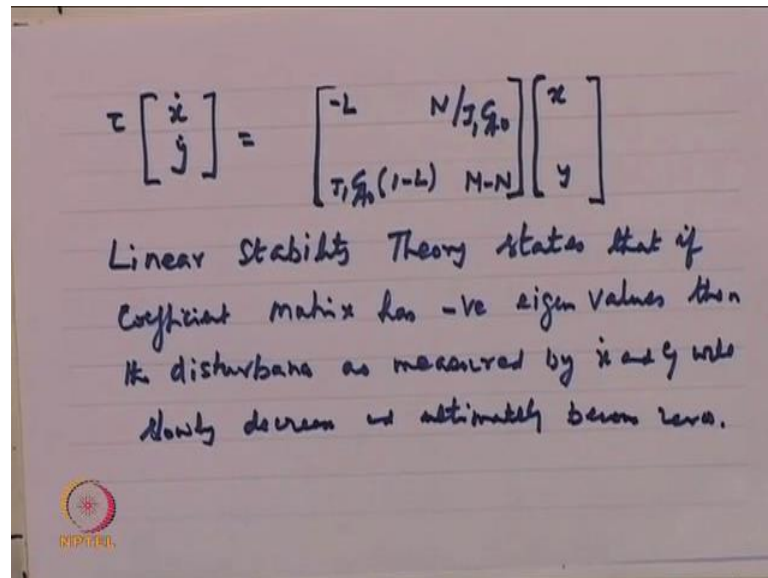 τ [ ẋ ẏ ] = [ -L N/J₁C_A0 J₁C_A0(1-L) M-N ] [ x y ]
Linear Stability Theory states that if
Coefficient matrix has -ve eigen values then
the disturbance as measured by ẋ and ẏ will
slowly decrease and ultimately become zero.
NPTEL